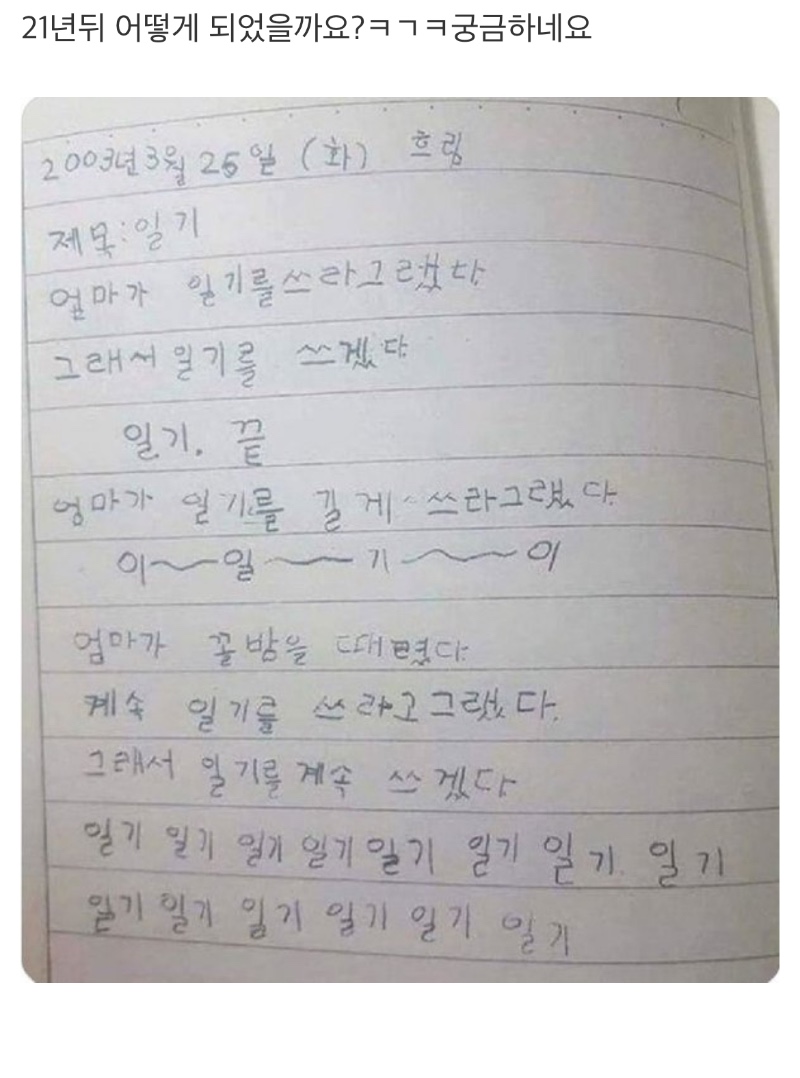 21년뒤 어떻게 되었을까요?ㅋㄱㅋ궁금하네요
2003년3월 25일 (화) 흐림
제목:일기
엄마가 일기를쓰라그랬다
그래서 일기를 쓰겠다
일기. 끝
엄마가 일기를 길게 쓰라그랬다
이~일~기~이
엄마가 꿀밤을 때렸다
계속 일기를 쓰라고그랬다.
그래서 일기를계속 쓰겠다
일기 일기 일기 일기 일기 일기 일기 일기
일기 일기 일기 일기 일기 일기